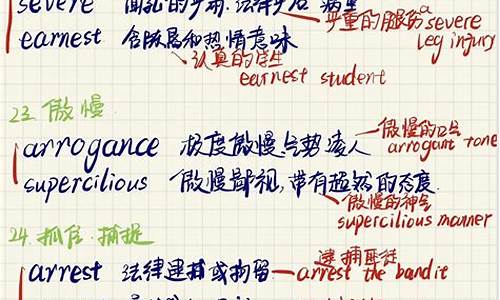 severe
严重的腿伤 a severe leg injury
earnest 含威居和热情意味
认真的学生 earnest student
23. 傲慢
arrogance 极度傲慢 气势凌人
傲慢的口气 arrogant tone
supercilious 傲慢鄙视,带有超然的态度
傲慢的神气 supercilious manner
24. 抓住.捕捉
arrest 法律逮捕或拘留
逮捕匪徒 arrest the bandit